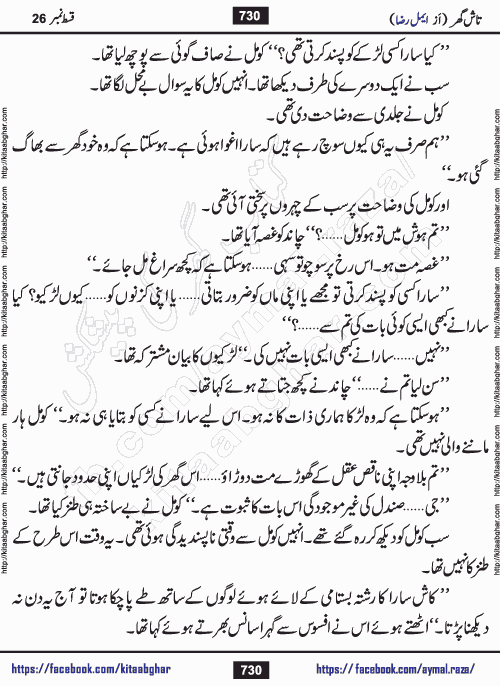 تاش گھر (از ایمل رضا) 730 قسط نمبر 26
’’کیا سارا کسی لڑکے کو پسند کرتی تھی؟‘‘ کومل نے صاف گوئی سے پوچھ لیا تھا۔
سب نے ایک دوسرے کی طرف دیکھا تھا۔ انہیں کومل کا یہ سوال بے محل لگا تھا۔
کومل نے جلدی سے وضاحت دی تھی۔
’’ہم صرف یہ ہی کیوں سوچ رہے ہیں کہ سارا اغوا ہوئی ہے۔ ہو سکتا ہے کہ وہ خود گھر سے بھاگ
گئی ہو۔‘‘
اور کومل کی وضاحت پر سب کے چہروں پر سختی آئی تھی۔
’’تم ہوش میں تو ہو کومل......؟‘‘ چاند کو غصہ آیا تھا۔
’’غصہ مت ہو۔ اس رخ پر سوچو تو سہی......ہو سکتا ہے کہ کچھ سراغ مل جائے۔‘‘
’’سارا کسی کو پسند کرتی تو مجھے یا اپنی ماں کو ضرور بتاتی......یا اپنی کزنوں کو......کیوں لڑکیو؟ کیا
سارا نے کبھی ایسی کوئی بات کی تم سے......؟‘‘
’’نہیں......سارا نے کبھی ایسی بات نہیں کی۔‘‘ لڑکیوں کا بیان مشترکہ تھا۔
’’سن لیا تم نے......‘‘ چاند نے کچھ جتاتے ہوئے کہا تھا۔
’’ہو سکتا ہے کہ وہ لڑکا ہماری ذات کا نہ ہو۔ اس لیے سارا نے کسی کو بتایا ہی نہ ہو۔‘‘ کومل ہار
ماننے والی نہیں تھی۔
’’تم بلاوجہ اپنی ناقص عقل کے گھوڑے مت دوڑاؤ......اس گھر کی لڑکیاں اپنی حدود جانتی ہیں۔‘‘
’’جی......صندل کی غیر موجودگی اس بات کا ثبوت ہے۔‘‘ کومل نے بے ساختہ ہی طنز کیا تھا۔
سب کومل کو دیکھ کر رہ گئے تھے۔ انہیں کومل سے وقتی ناپسندیدگی ہوئی تھی۔ یہ وقت اس طرح کے
طنز کا نہیں تھا۔
’’کاش سارا کا رشتہ بستامی کے لائے ہوئے لوگوں کے ساتھ طے پا چکا ہوتا تو آج یہ دن نہ
دیکھنا پڑتا۔‘‘ اٹھتے ہوئے اس نے افسوس سے گہرا سانس بھرتے ہوئے کہا تھا۔
https://facebook.com/kitaabghar 730 https://facebook.com/aymal.raza/
http://kitaabghar.com http://kitaabghar.com http://kitaabghar.com http://kitaabghar.com http://kitaabghar.com http://kitaabghar.com